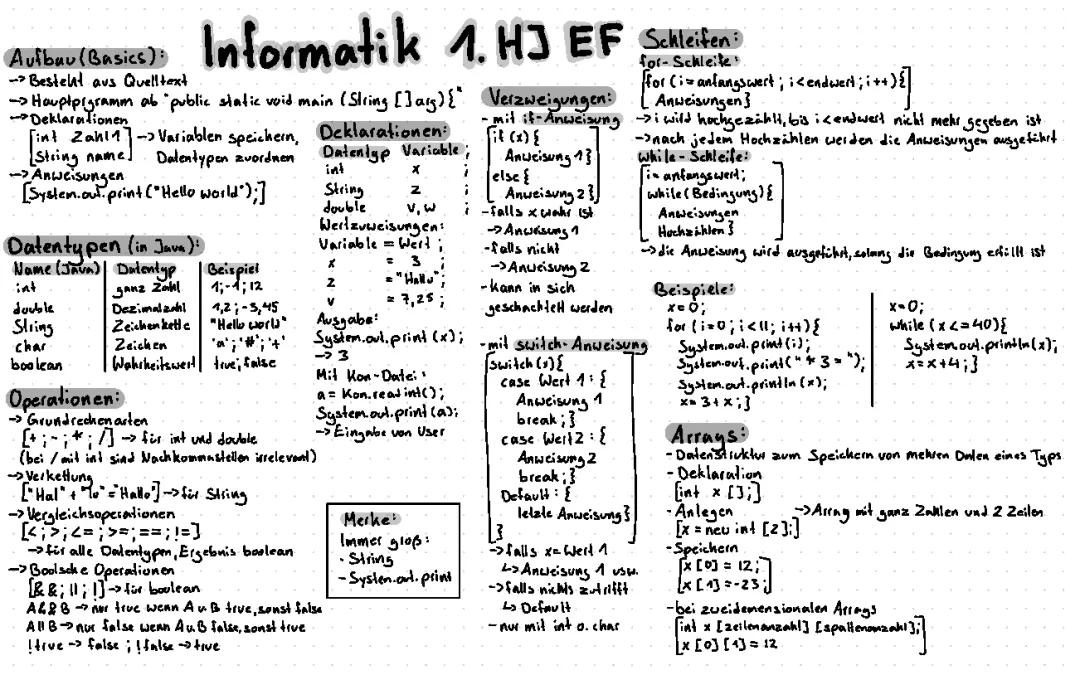 Informatik 1. HJ EF
Aufbau (Basics):
-> Besteht aus Quelltext
-> Hauptprgramm ab "public static void main (String [] arg) {"
-> Deklarationen
[int Zahl1
String name] -> Variablen speichern,
Datentypen zuordnen
-> Anweisungen
[System.out.print ("Hello world");]
Datentypen (in Java):
Name (Java) | Datentyp | Beispiel
int | ganz Zahl | 1; -1; 12
double | Dezimalzahl | 1,2; -3,45
String | Zeichenkette | "Hello world"
char | Zeichen | 'a'; '#'; '+'
boolean | Wahrheitswert | true, false
Operationen:
-> Grundrechenarten
[+ ; - ; * ; /] -> für int und double
(bei / mit int sind Nachkommastellen irrelevant)
-> Verkettung
["Hal" + "lo" = "Hallo"] -> für String
-> Vergleichsoperationen
[< ; > ; <= ; >= ; == ; !=]
-> für alle Datentypen, Ergebnis boolean
-> Boolsche Operationen
[&& ; || ; !] -> für boolean
A&&B -> nur true wenn A u B true, sonst false
A||B -> nur false wenn A u. B false, sonst true
!true -> false ; !false -> true
Deklarationen:
Datentyp Variable ;
int x ;
String z ;
double v, w ;
Wertzuweisungen:
Variable = Wert ;
x = 3 ;
z = "Hallo" ;
v = 7,25 ;
Ausgabe:
System.out.print (x);
-> 3
Mit Kon-Datei:
a = Kon.readint();
System.out.print (a);
-> Eingabe von User
Merke:
Immer groß:
- String
- System.out.print
Verzweigungen:
- mit if-Anweisung
[if (x) {
Anweisung 1 }
else {
Anweisung 2 }]
- falls x wahr ist
-> Anweisung 1
- falls nicht
-> Anweisung 2
- kann in sich
geschachtelt werden
- mit switch-Anweisung
[switch (x) {
case Wert 1 : {
Anweisung 1
break ; }
case Wert 2 : {
Anweisung 2
break ; }
Default : {
letzte Anweisung }
}]
-> falls x = Wert 1
↳ Anweisung 1 usw.
-> falls nichts zutrifft
↳ Default
- nur mit int o. char
Schleifen:
for-Schleife:
[for (i = anfangswert ; i < endwert ; i++) {
Anweisungen }]
-> i wird hochgezählt, bis i < endwert nicht mehr gegeben ist
-> nach jedem Hochzählen werden die Anweisungen ausgeführt
while-Schleife:
[i = anfangswert ;
while (Bedingung) {
Anweisungen
Hochzählen }]
-> die Anweisung wird ausgeführt, solang die Bedingung erfüllt ist
Beispiele:
x = 0 ;
for (i = 0 ; i < 11 ; i++) {
System.out.print (i);
System.out.print (" * 3 = ");
System.out.println (x);
x = 3 + x ; }
x = 0 ;
while (x <= 40) {
System.out.println (x);
x = x + 4 ; }
Arrays:
- Datenstruktur zum Speichern von mehren Daten eines Typs
- Deklaration
[int x [] ;]
- Anlegen -> Array mit ganz Zahlen und 2 Zeilen
[x = new int [2] ;]
- Speichern
[x [0] = 12 ;
x [1] = -23 ;]
- bei zweidemensionalen Arrays
[int x [zeilenanzahl] [spaltenanzahl] ;
x [0] [1] = 12]